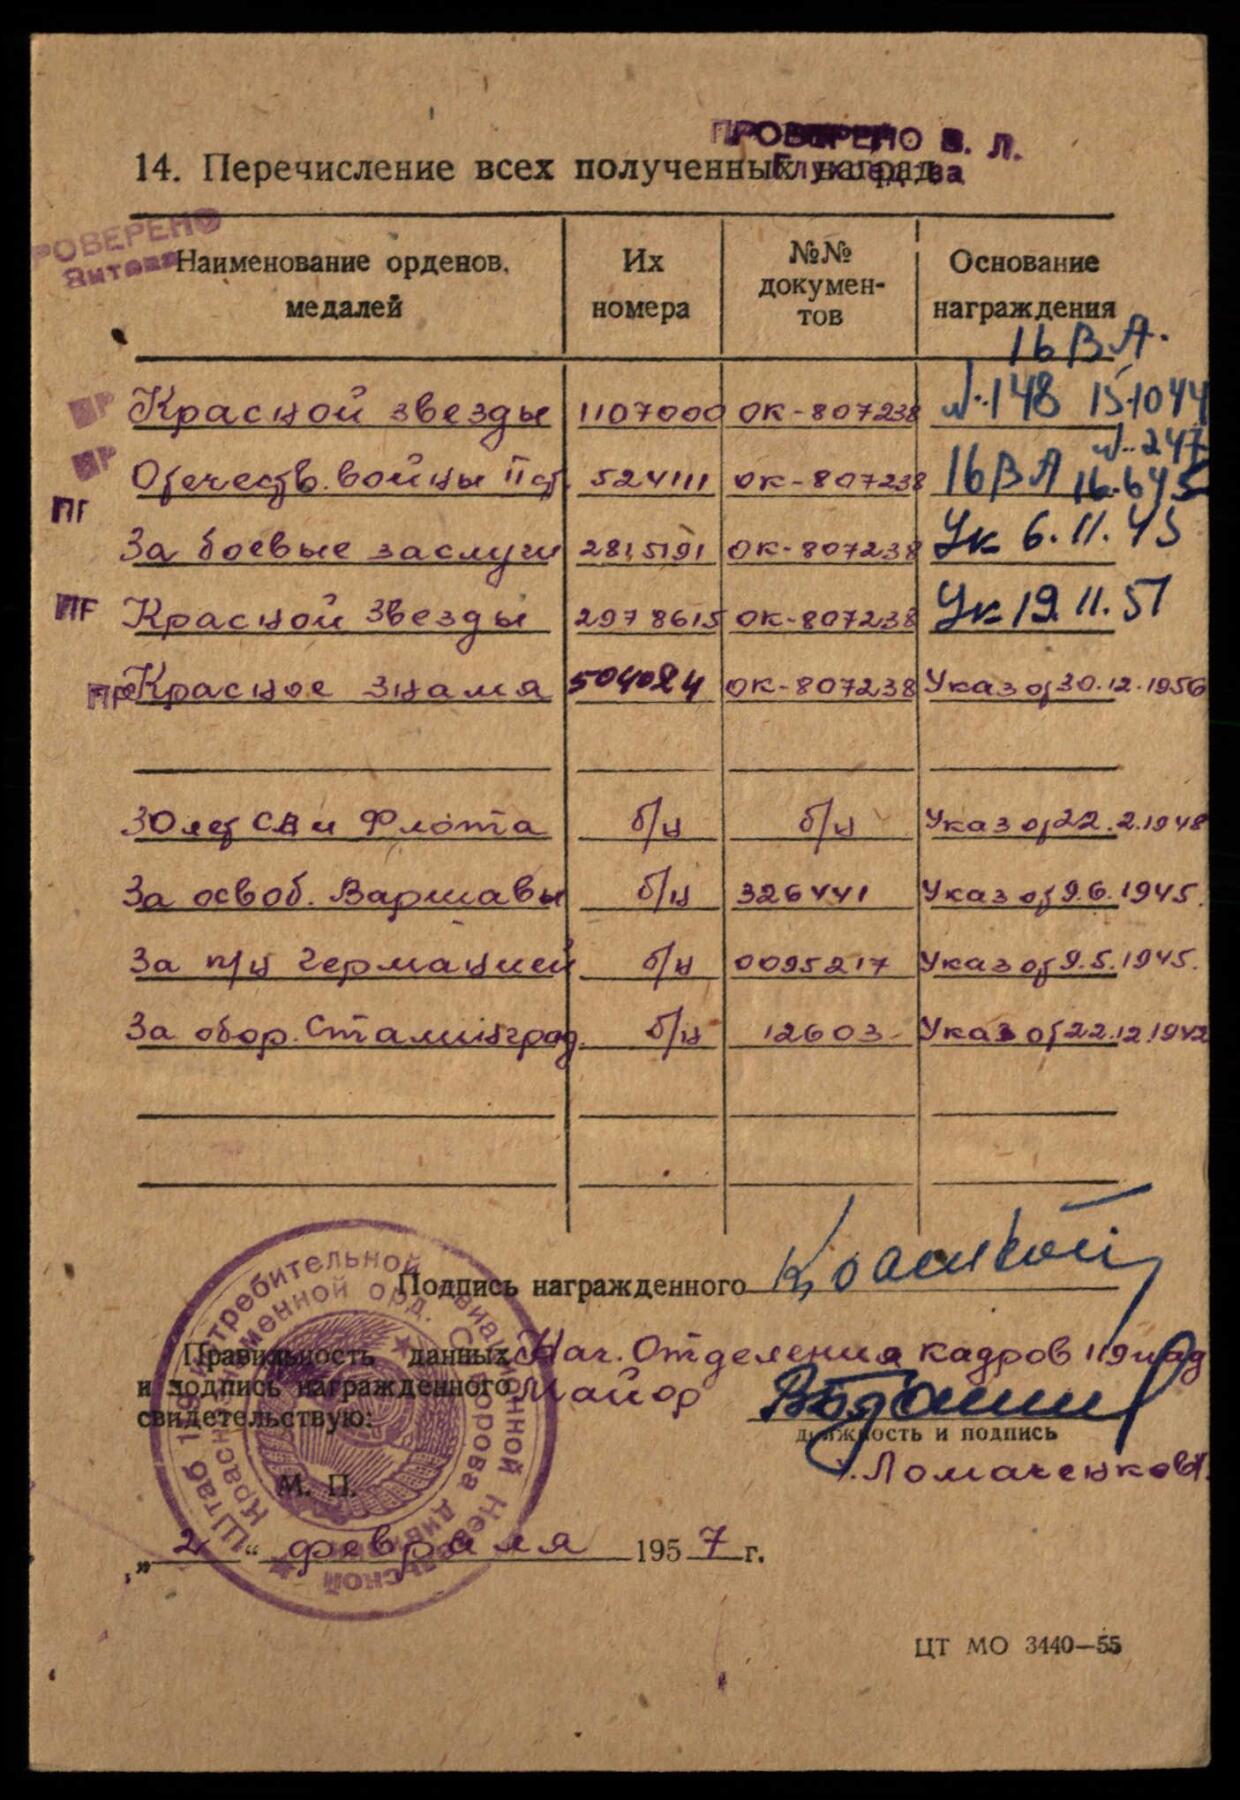 ПРОВЕРЕНО В. Л.
14. Перечисление всех полученных наград
ПРОВЕРЕНО
Наименование орденов, медалей | Их номера | №№ докумен-тов | Основание награждения
16 ВА.
Красной звезды 1107000 ОК-807238 №148 15.10 44
№ 247
Отечеств. войны II ст. 524111 ОК-807238 16 ВА 16.6 45
ПГ
За боевые заслуги 2815191 ОК-807238 Ук 6.11.45
ПГ Красной Звезды 2978615 ОК-807238 Ук 19.11.51
Красное знамя 504024 ОК-807238 Указ от 30.12.1956
30 лет СА и Флота б/н б/н Указ от 22.2.1948
За освоб. Варшавы б/н 326441 Указ от 9.6.1945.
За п/н Германией б/н 0095217 Указ от 9.5.1945.
За обор. Сталинград. б/н 12603 Указ от 22.12.1942
Подпись награжденного
Правильность данных Нач. Отделения кадров 119 иад
и подпись награжденного Майор
свидетельствую:
должность и подпись
Ломаченков
М. П.
„2“ февраля 1957 г.
Штаб 119 Истребительной Авиационной Невельской
Краснознаменной орд. Суворова дивизии
ЦТ МО 3440—55